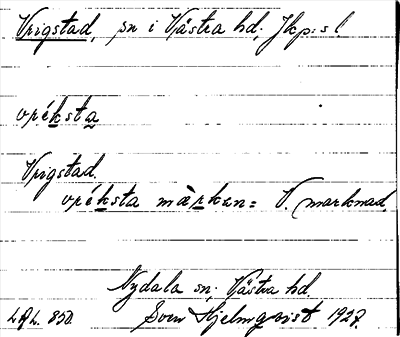 Vrigstad, sn i Västra hd, Jkp:s l.
vréksta
Vrigstad.
vréksta màrkən = V. marknad.
Nydala sn, Västra hd.
L.A.L. 850. Sven Hjelmqvist 1927.